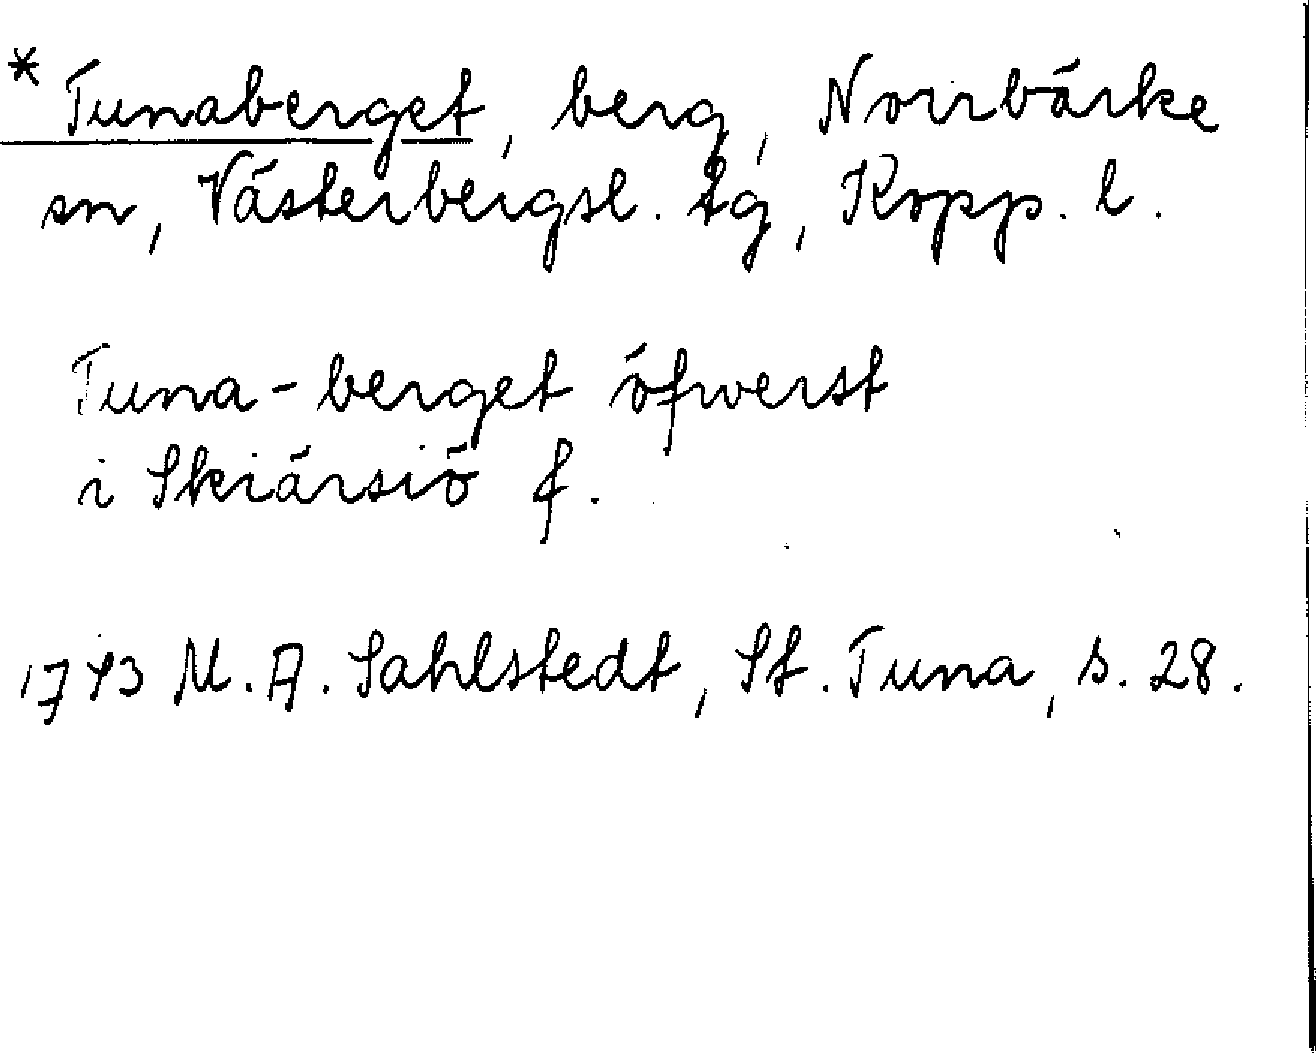 * Tunaberget, berg, Norrbärke
sn, Västerbergsl. tg, Kopp. l.
Tuna-berget öfwerst
i Skiärsiö f.
1743 M. A. Sahlstedt, St. Tuna, s. 28.